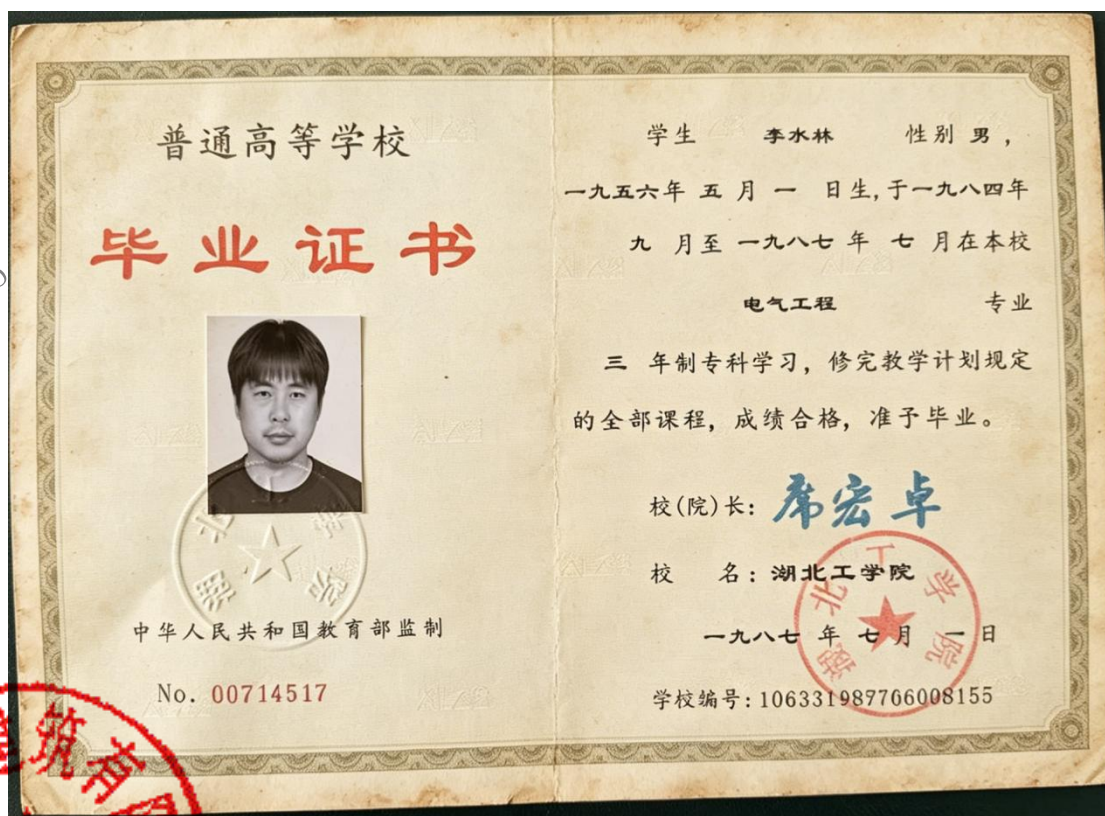 普通高等学校
毕业证书
湖北工学院
中华人民共和国教育部监制
No. 00714517
筑有
学生 李水林 性别 男，
一九五六年 五 月 一 日生,于一九八四年
九 月至 一九八七 年 七 月在本校
电气工程 专业
三 年制专科学习，修完教学计划规定
的全部课程，成绩合格，准予毕业。
校(院)长: 席宏卓
校 名: 湖北工学院
湖北工学院
一九八七 年 七 月 一 日
学校编号:106331987706008155